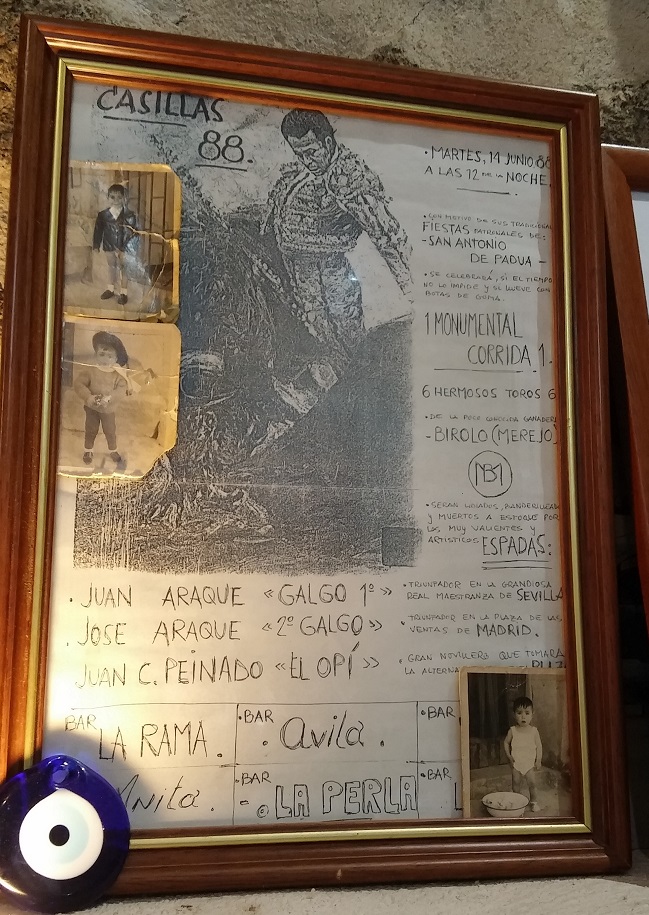 CASILLAS
88.
• MARTES, 14 JUNIO 88
A LAS 12 DE LA NOCHE.
• CON MOTIVO DE SUS TRADICIONAL
FIESTAS PATRONALES DE:
-SAN ANTONIO
DE PADUA -
• SE CELEBRARÁ, SI EL TIEMPO
NO LO IMPIDE Y SI LLUEVE CON
BOTAS DE GOMA.
1 MONUMENTAL
CORRIDA 1.
6 HERMOSOS TOROS 6
• DE LA POCO CONOCIDA GANADERI
-BIROLO (MEREJO)
• SERAN LIDIADOS, BANDERILLEA
Y MUERTOS A ESTOQUE POR
LOS MUY VALIENTES Y
ARTISTICOS ESPADAS:
• JUAN ARAQUE «GALGO 1º»
• TRIUNFADOR EN LA GRANDIOSA
REAL MAESTRANZA DE SEVILLA
. JOSE ARAQUE «2º GALGO»
• TRIUNFADOR EN LA PLAZA DE LAS
VENTAS DE MADRID.
JUAN C. PEINADO «EL OPÍ»
• GRAN NOVILLERO QUE TOMARA
LA ALTERNA
BAR
LA RAMA.
• BAR
. Avila .
• BAR
Anita.
• BAR
-. LA PERLA
• BAR
L